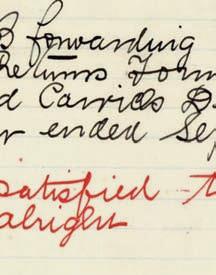 forwarding
Returns Form
d Carrids
r ended Sep
satisfied -
alright